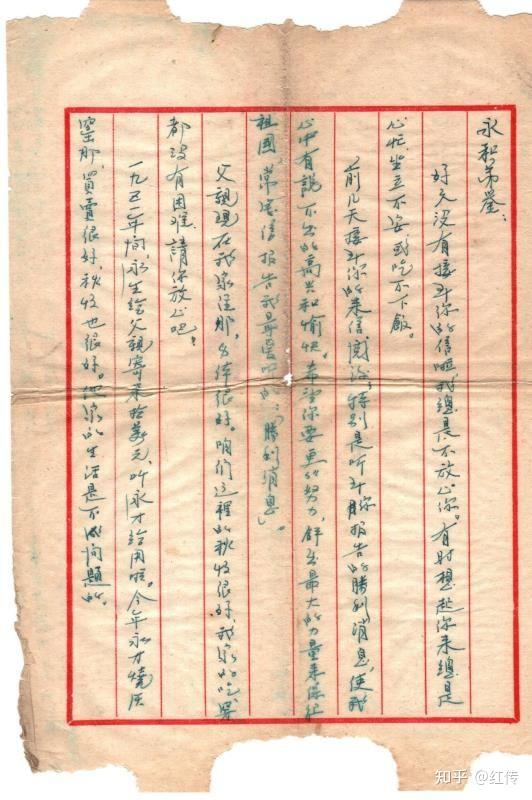 永和弟鉴：
好久没有接到你的信啦我總是不放心你。有时想起你来總是
心忙坐立不安或吃不下飯。
前几天接到你的来信閲洽；特别是听到你報告的勝利消息，使我
心中有說不出的高兴和愉快。希望你要更的努力，鲜出最大的力量来保卫
祖國，常来信報告我最愛听的：「勝利消息」。
父親現在我家住那，身体很好。咱们這裡的秋收很好，我家的吃穿
都没有困难，請你放心吧！
一九五二年间，永生给父親寄来拾萬元，叫永才给用啦。今年永才燒瓦
窑那，買賣很好，秋收也很好。他家的生活是不成问題的。
知乎 @红传